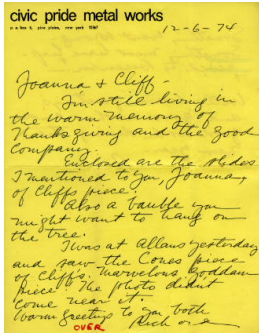 civic pride metal works
p o box 5, pine plains, new york 12567
12-6-74
Joanna & Cliff-
I'm still living in
the warm memory of
Thanksgiving and the good
company.
Enclosed are the slides
I mentioned to you, Joanna,
of Cliff's piece.
Also a bauble you
might want to hang on
the tree.
I was at Allans yesterday
and saw the Cones piece
of Cliff's. Marvelous, Goddam
piece! The photo didn't
come near it!
Warm greetings to you both
OVER